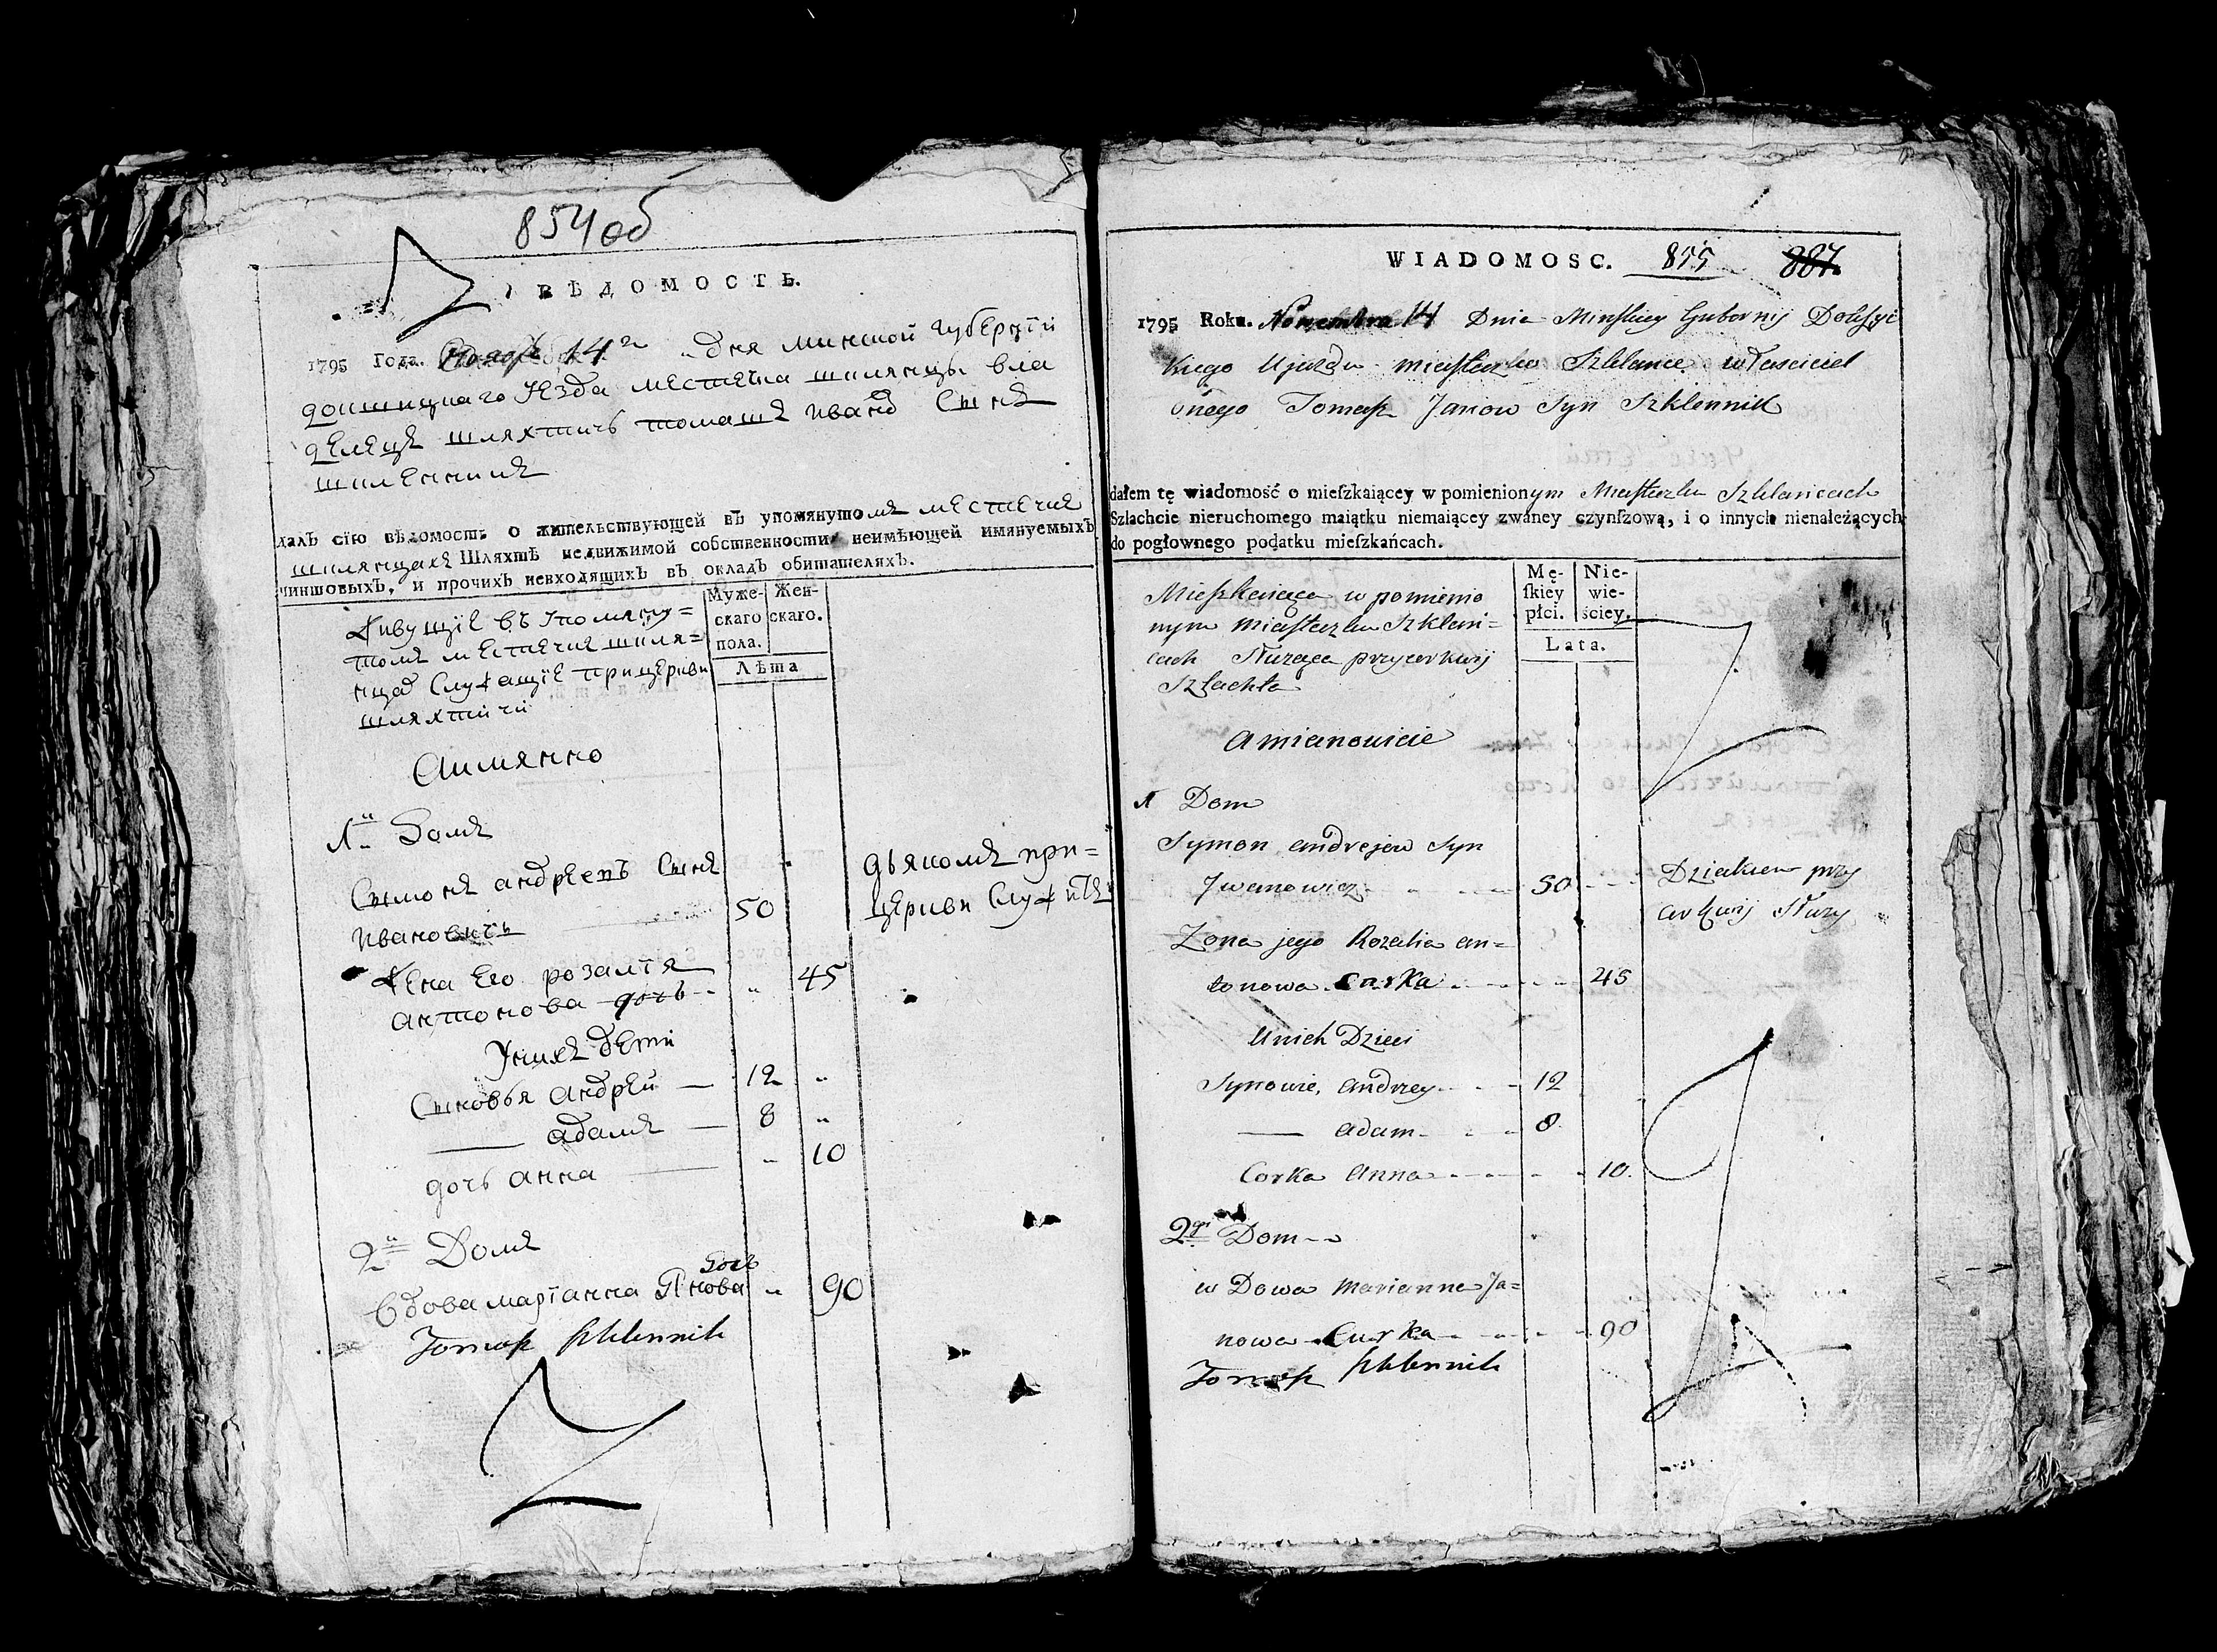 854об
ВѢДОМОСТЬ.
1795 Года. Ноября 14го дня минской губернїи
докшицкаго уезда местечка шклянцы вла
делецъ шляхтичъ томашъ иванов Сынъ
шкленникъ
далъ сїю вѣдомость о жительствующей въ упомянутомъ местечке
шклянцахъ Шляхтѣ недвижимой собственности неимѣющей имянуемыхъ
чиншовыхъ, и прочихъ невходящихъ въ окладъ обитателяхъ.
Муже-
скаго
пола.
Жен-
скаго.
Лѣта
живущїе въ упомяну=
томъ местечке шкля=
нцах служащїе прицеркви
шляхтичи
Аимянно
1й Домъ
Сымонъ андреевъ Сынъ
ивановичъ 50
дьякомъ при=
церкви служитъ
жена Его розалїя
антонова дочь " 45
Унихъ дети
Сыновья андрей — 12 "
— адамъ — 8 "
дочь анна " 10
2й Домъ
дочь
вдова марїанна Янова " 90
Tomasz Szklennik
WIADOMOSC. 855 887
1795 Roku. Novembra 14 Dnia Minskiey Gubernij Dokszyc
kiego Ujazdu miasteczka Szklanec właściciel
onego Tomasz Janow Syn Szklennik
dałem tę wiadomość o mieſzkaiącey w pomienionym Miasteczku Szklanicach
Szlachcie nieruchomego maiątku niemaiącey zwaney czynſzową, i o innych nienależących
do pogłownego podatku mieſzkańcach.
Mę-
ſkiey
płci.
Nie-
wie-
ściey.
Lata.
Mieszkaiąca w pomienio
nym miasteczku Szklani=
cach Służąca przycerkwij
Szlachta
amianowicie
1 Dom
Symon andrejew Syn
Jwanowicz 50 Dziakiem przy
cerkwij Służy
Zona jego Rozalia an=
tonowa Carka 45
Unich Dzieci
Synowie, andrzey 12
— adam 8
Corka Anna 10.
2gi Dom
w Dowa Marianna Ja=
nowa Curka 90
Tomasz Szklennik